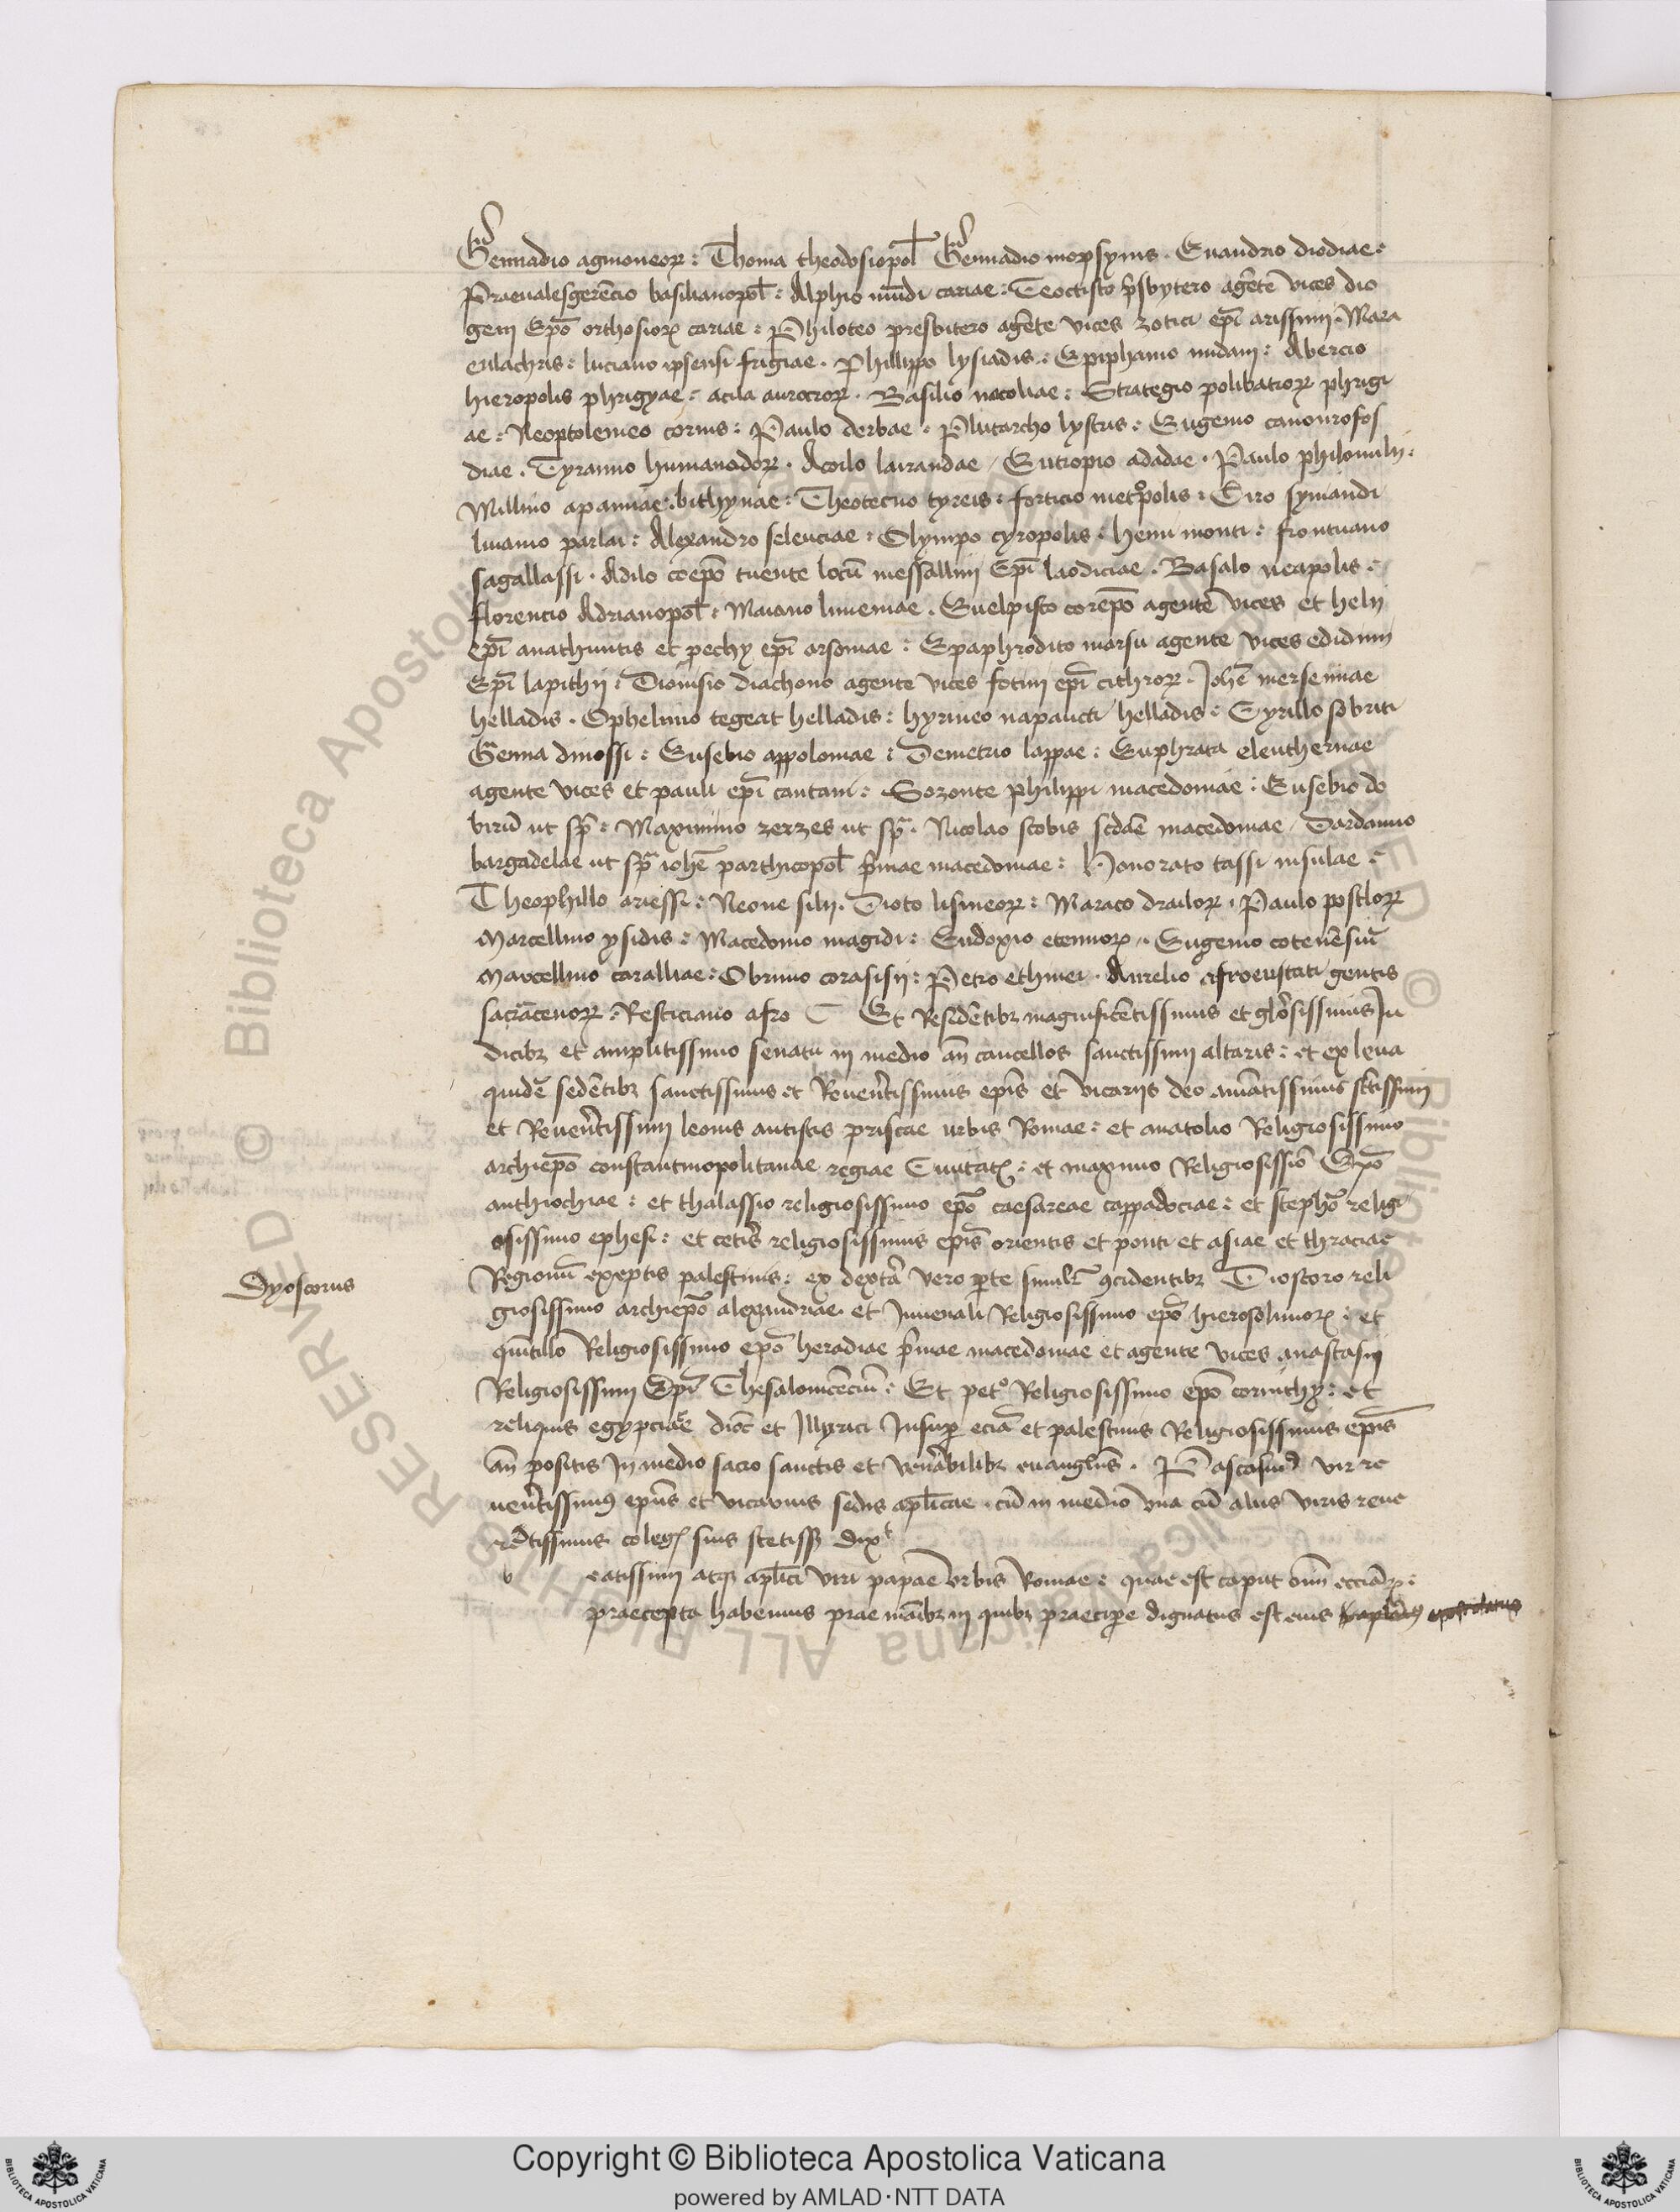 Gennadio agmoneor͛ : Thoma theodosiopol̄ Gennadio mopsyms . Euandrio diodiae :
Praeualesgerēcio basilianopol̄ : Alphio mūdi cariae : Teoctisto p̄sbytero agēte vices dio
geni Ep̄o orthosior͛ cariae : Philoteo presbitero agēte vices zotici ep̄i arissinij . Mara
enlachris : luciano ipsensi frigiae . Phillippo lysiadis : Epiphanio midaij : Abercio
hieropolis phrigyae : acila aurocror͛ . Basilio nacoliae : Strategio polibatior͛ phrigi
ae : Neoptolemeo cornis : Paulo derbae . Plutarcho lystris : Eugenio canonrofos
diae . Tyranno humanador͛ . Acoilo lairandae / Eutropio adadae . Paulo philomilij .
Millino apamiae : bithynae : Theotecno tyreis : forticio metͦpolis : Siro symandi
liuanio parlai : Alexandro seleuciae : Olympo cyropolis : hemi monti : frontiano
sagallassi . Adilo coep̄o tuente locū messallini Ep̄i laodiciae . Basalo neapolis :
florencio Adrianopol̄ : Maiano limeniae . Euelpisto corep̄o agente vices et helij
ep̄i anathuntis et pechy ep̄i arsoniae : Epaphrodito marsu agente vices edidimi
Ep̄i lapithij : Dionisio diachono agente vices fotini ep̄i cithror͛ . Joh̄e mersenniae
helladis . Ophelimo tegeat helladis : hyrineo napaucti helladis : Cyrillo sobriti
Genna dinossi : Eusebio appoloniae : Demetrio lappae : Euphrata eleuthernae
agente vices et pauli ep̄i cantani : Sozonte philippi macedoniae : Eusebio do
birū ut sp̄ : Maximino zerzes ut sp̄ . Nicolao scobis scdāē macedoniae / Dardanio
bargadelae ut sp̄ ioh̄e parthicopol̄ p̄mae macedoniae : Honorato tassi insulae :
Theophillo ariessi : Neone silij . Dioto lisineor͛ : Maraco drailor͛ . Paulo postlor͛
Marcellino ysidis : Macedonio magidi : Eudoxio etennor͛ . Eugenio cotenēsiū
Marcellino caralliae : Obrimo corasisij : Petro ethinei . Aurelio afroeustati gentis
sacracenor͛ : Resticiano afro Et Residētibꝫ magnificētissimis et gl̄osissimis Ju
dicibꝫ et amplitissimo senatu in medio an̄ cancellos sanctissimi altaris : et ex leua
quidē sedētibꝫ sanctissimis et Reueretissimis ep̄is et vicarijs deo amātissimis sc̄tissimi
et Reuerētissimi leonis antistis priscae urbis Romae : et anatolio Religiosissimo
archiep̄o constantinopolitanae regiae Ciuitatꝭ : et maximo Religiosissiō Ep̄o
anthiochiae : et thalassio religiosissimo ep̄o caesareae cappadociae : et steph̄o religi
osissimo ephesi : et cetīs religiosissimis ep̄is orientis et ponti et asiae et thraciae
Dyoscorus
Regionū exeptis palestinis : ex dextā vero ꝑte simil̄r ꝯcidentibꝫ Dioscoro reli
giosissimo archiep̄o alexandriae et Juuenali Religiosissimo ep̄o hierosolimor͛ : et
quītillo Religiosissimo ep̄o heradiae p̄mae macedoniae et agente vices anastasij
Religiosissimi Ep̄i Thesalonicēciū : Et petͦ Religiosissimo ep̄o corinthy : et
reliquis egypciāe dioc̄ et Illyrici Insuꝑ eciā et palestinis Religiosissimis ep̄is
an̄ positis In medio sacro sanctis et venābilibꝫ euangl̄iis . Pascasinꝰ vir re
uerētissimꝰ ep̄us et vicarius sedis apl̄icae . cū in medio vna cū aliis viris reue
rētissimis colegꝭ suis stetissꝫ dixͭ
b eatissimi atqꝫ apl̄ici viri papae vrbis Romae : quae est caput oīm eccl̄iar͛ :
praecepta habemus prae māibꝫ in quibꝫ praeciꝑe dignatus est eius